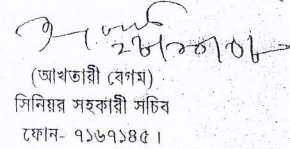 (আখতারী বেগম)
সিনিয়র সহকারী সচিব
ফোন- ৭১৬৭১৪৫।